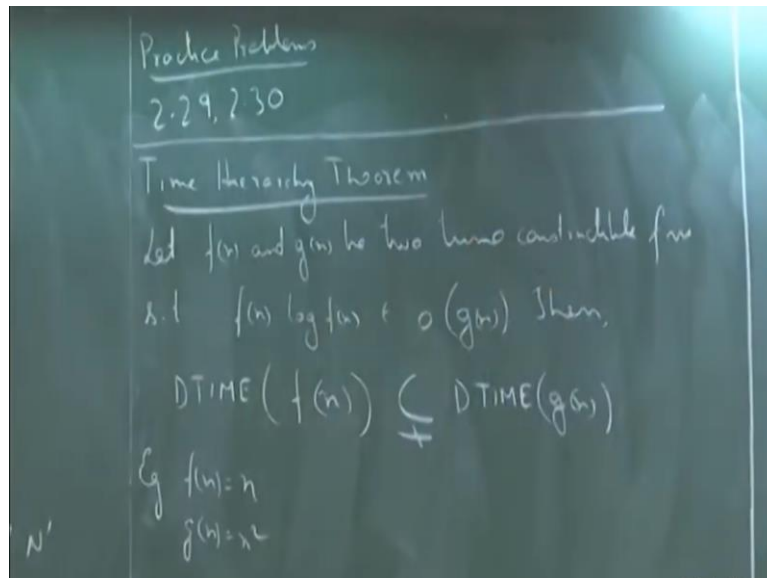 Practice Problems
2.29, 2.30
Time Hierarchy Theorem
Let f(n) and g(n) be two time constructible fns
s.t f(n) log f(n) ∈ o(g(n)) Then,
DTIME(f(n)) ⊊ DTIME(g(n))
Eg f(n)=n
g(n)=n²
'N'